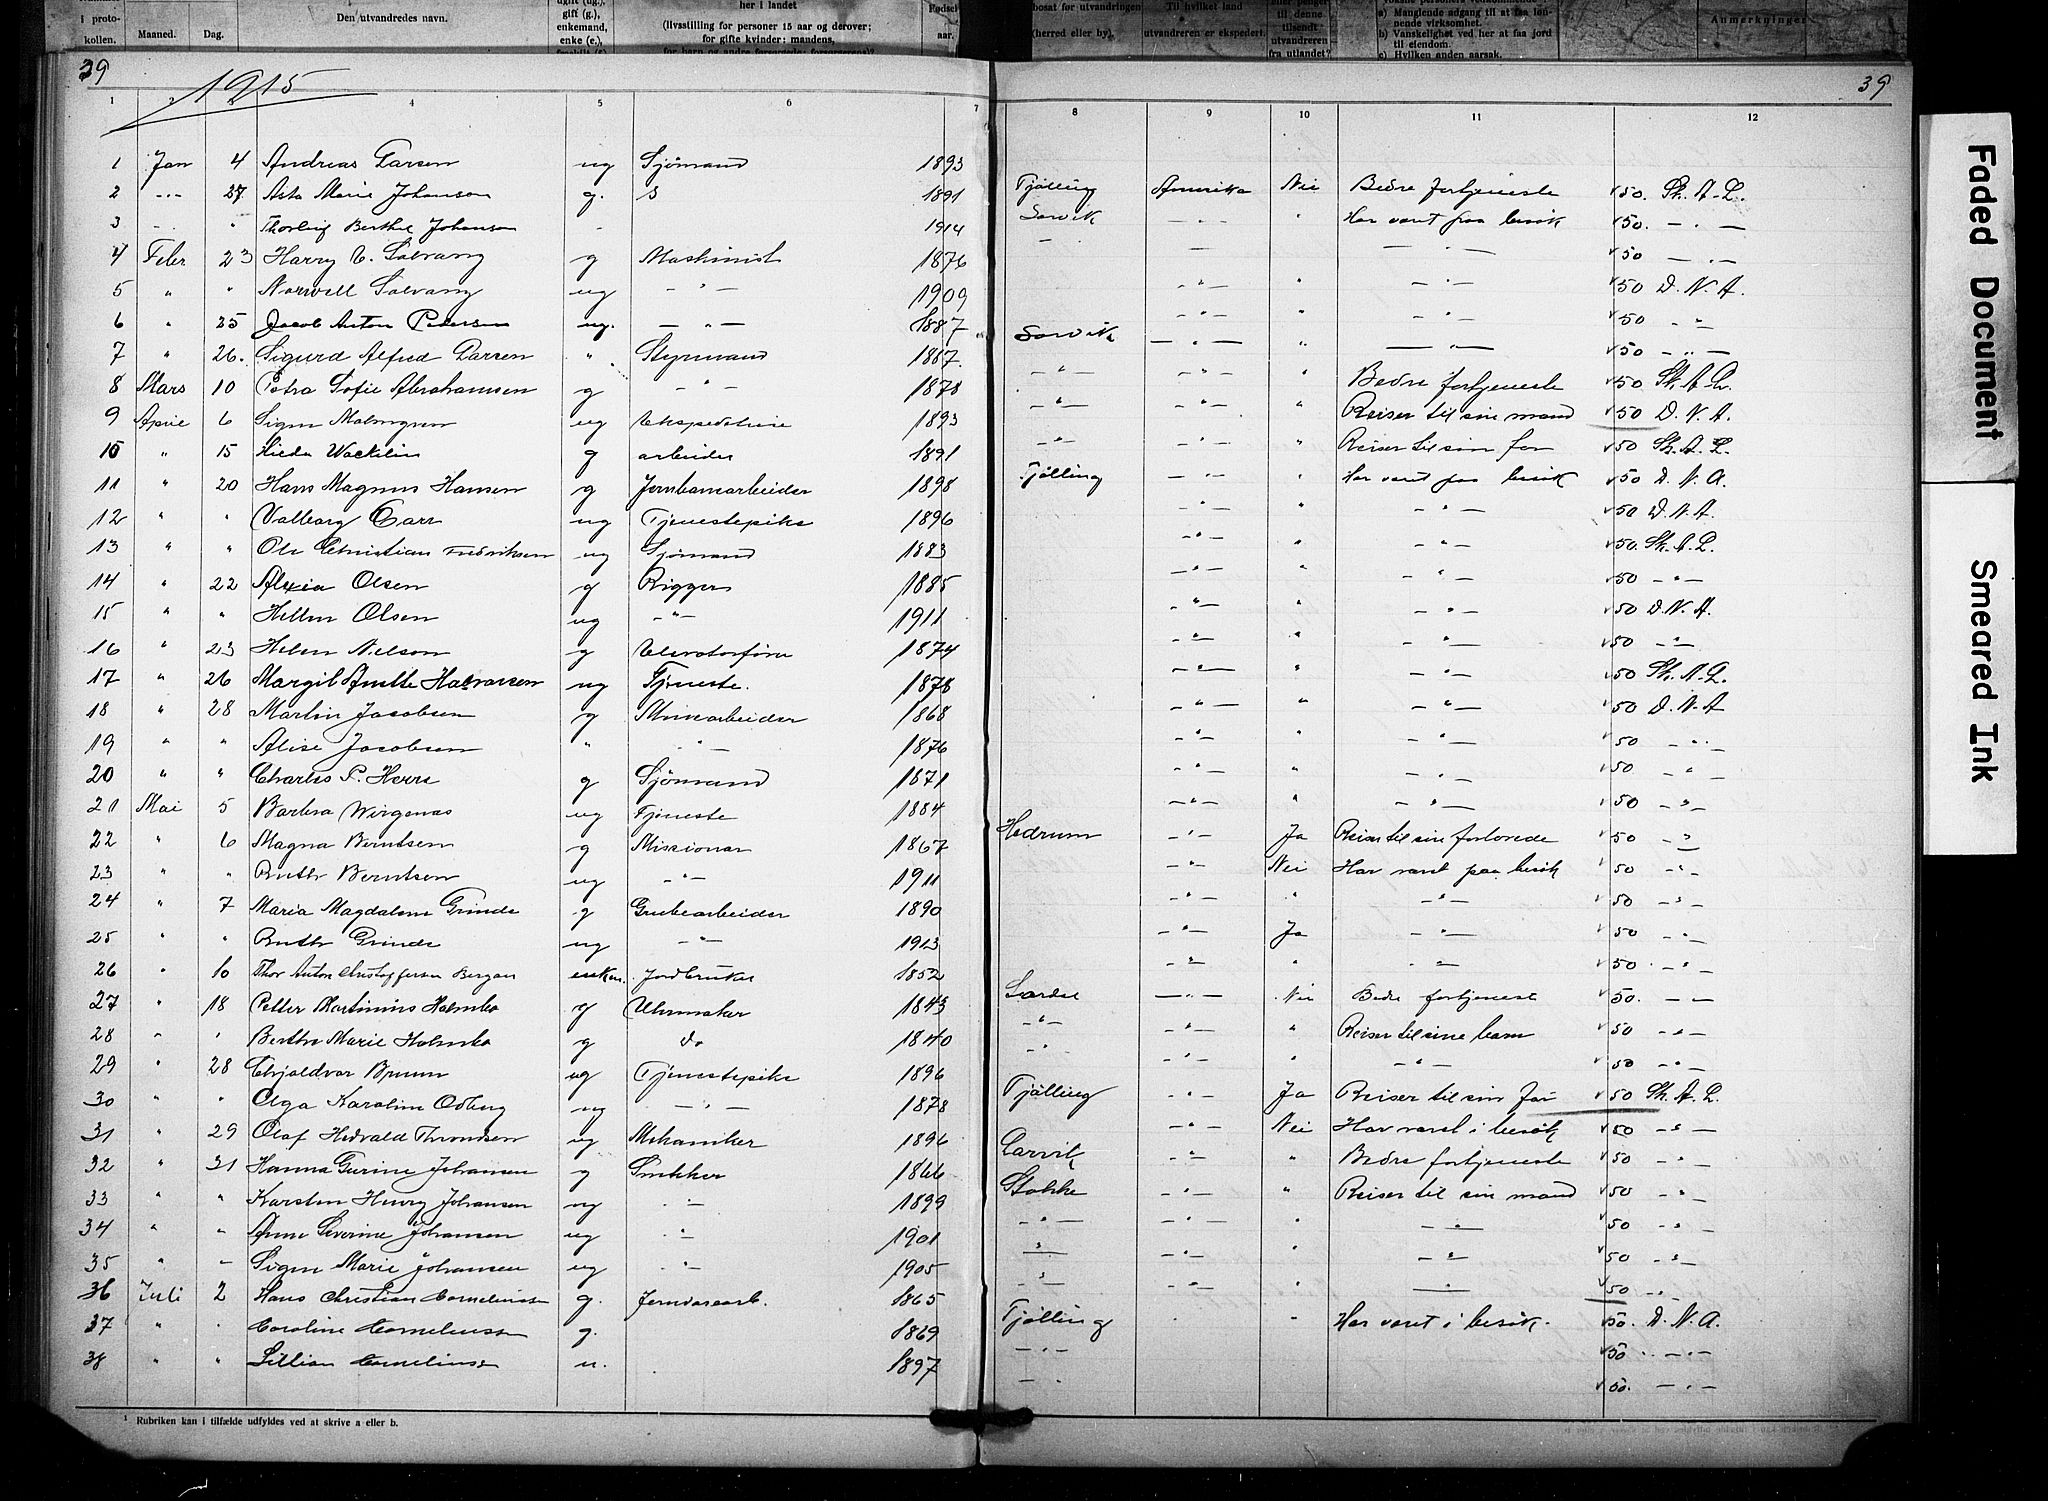 i proto-
kollen.
Maaned.
Dag.
Den utvandredes navn.
gift (g.),
enkemand,
enke (e.),
her i landet
(livsstilling for personer 15 aar og derover;
for gifte kvinder: mandens,
Fødsel
aar.
bosat før utvandringen
(herred eller by).
Til hvilket land
utvandreren er ekspedert.
til denne
tilsendt
utvandreren
fra utlandet?
a) Manglende adgang til at faa løn-
nende virksomhet.
b) Vanskelighet ved her at faa jord
til eiendom.
c) Hvilken anden aarsak.
Anmerkninger
39
1915
39
1 2 4 5 6 7 8 9 10 11 12
1 Jan 4 Andreas Larsen ug Sjömand 1893 Tjölling Amerika Nei Bedre fortjeneste 50. Sk. A. L.
2 -"- 27 Asta Marie Johanson g. 1891 Larvik -"- " Har været paa besök 50. - " -
3 - " Thorleif Berthel Johanson - 1914 - - " - 50 - " -
4 Febr 23 Harry C. Solvang g Maskinist 1876 -"- " - " - 50 D. N. A.
5 " " Norvell Solvang ug - " - 1909 -"- " - " - 50 - "
6 " 25 Jacob Anton Pedersen ug. - " - 1887 Larvik -"- " - " - 50 - " -
7 " 26. Sigurd Alfred Larsen " Styrmand 1887. - " - - " - " Bedre fortjeneste 50 Sk. A. L.
8 Mars 10 Petra Sofie Abrahamsen g - " - 1878 - " - - " - " Reiser til sin mand 50 D. N. A.
9 April 6 Signe Malmgren ug Ekspeditrise 1893 - " - - " - " Reiser til sin far 50 Sk. A. L.
10 " 15 Wacklin g arbeider 1891 Tjölling - " - " Har været paa besök 50 D. N. A.
11 " 20 Hans Magnus Hansen g Jernbanearbeider 1898 - " - " - " - 50 D. N. A.
12 " " Valborg Carr ug Tjenestepike 1896 - " - " - " - 50. Sk. A. L.
13 " " Ole Christian Fredriksen ug Sjömand 1883 - " - " - " - 50 - " -
14 " 22 Alexia Olsen g Rigger 1885 - " - " - " - 50 D. N. A.
15 " " Hellen Olsen ug - " - 1911 - " - " - " - 50 - " -
16 " 23 Helen Nielson g Elevatorförer 1874 - " - " - " - 50 Sk. A. L.
17 " 26 Margit Anette Halvorsen ug Tjeneste. 1878 - " - " - " - 50 D. N. A
18 " 28 Martin Jacobsen g Minearbeider 1868 - " - " - " - 50 - " -
19 " " Alise Jacobsen " " - 1876 - " - " - " - 50 - " -
20 " " Charles P. g Sjömand 1871 - " - " - " - 50 - " -
21 Mai 5 Barbra Wirgenas ug Tjeneste 1884 Hedrum - " - Ja Reiser til sin forlovede 50 - "
22 " 6 Magna Berntsen g Missionær 1867 - " - Nei Har været paa besök 50 - " -
23 " " Ruth Berntsen ug - " - 1911 - " - " - " - 50 - " -
24 " 7 Maria Magdalene Grinde g Grubearbeider 1890 - " - Ja - " - 50 - " -
25 " " Ruth Grinde ug - " - 1913 - " - " - " - 50 - " -
26 " 10 Thor Anton Christoffersen Bergan enkem. Jordbruker 1852 Lardal - " - Nei Bedre fortjeneste 50. - " -
27 " 18 Petter Martinius Holmbo g Uhrmaker 1843 - " - - " - " Reiser til sine barn 50 - " -
28 " " Berthe Marie Holmbo g do 1840 " - " - " - " - 50 - " -
29 " 28 Bruun ug Tjenestepike 1896 Tjölling - " - Ja Reiser til sin far 50 Sk. A. L.
30 " " Olga Karoline Odberg ug - " - 1878 - " - Nei Har været i besök 50 - " -
31 " 29 Olaf Hedvald Throndsen ug Mekaniker 1896 Larvik - " - " Bedre fortjeneste 50 - " -
32 " 31 Hanna Gurine Johansen g Snekker 1866 Stokke - " - " Reiser til sin mand 50 - " -
33 " " Karsten Henry Johansen ug " - 1899 - " - - " - " - " - 50 - " -
34 " " Anne Severine Johansen ug " - 1901 - " - - " - " - " - 50 - " -
35 " " Signe Marie Johansen ug " - 1905 - " - - " - " - 50 - " -
36 Juli 2 Hans Christian Corneliussen g. Jernvarearb. 1865 Tjölling " " Har været i besök. 50. D. N. A.
37 " " Caroline Corneliussen g. 1869 - " - 50 - " -
38 " " Lillian Corneliussen u. 1897 - " 50. - " -
¹ Rubriken kan i tilfælde utfyldes ved at skrive a eller b.
Faded Document
Smeared Ink